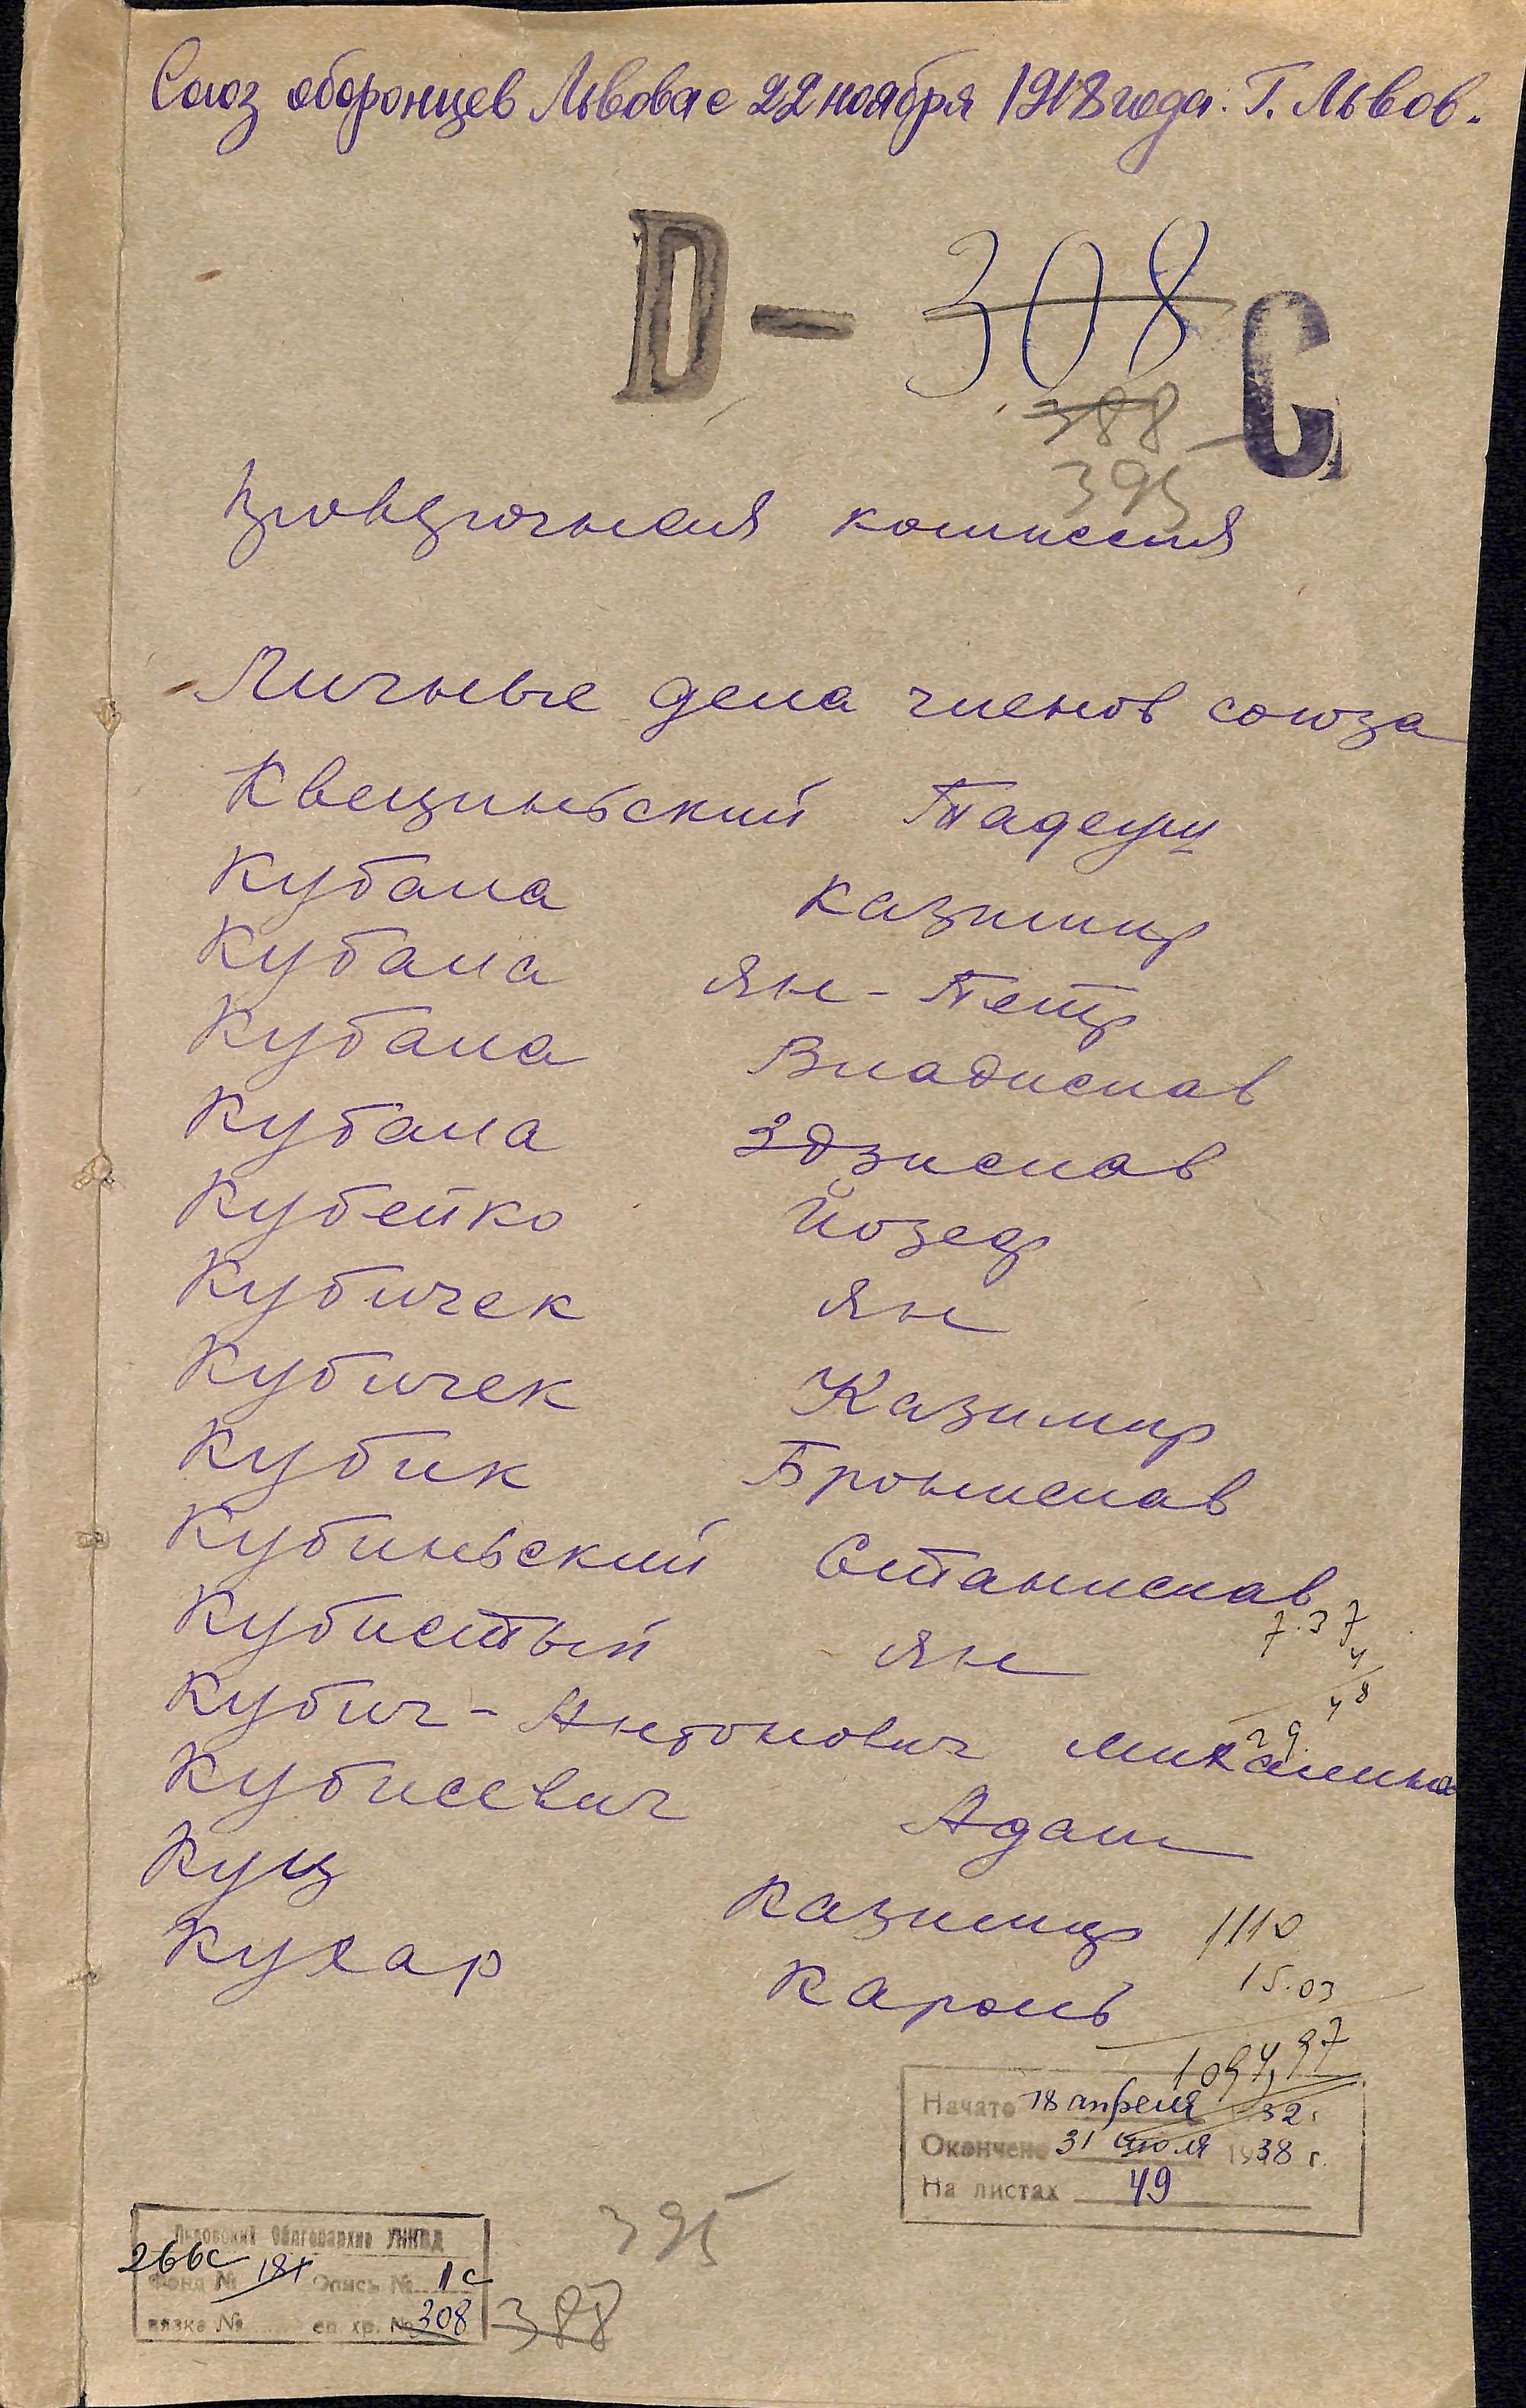 Союз оборонцев Львова с 22 ноября 1918 года. Г. Львов.
D – 308 С
388
395
комиссия
Личные дела членов союза
Квециньский Тадеуш
Кубала Казимир
Кубала Ян-Петр
Кубала Владислав
Кубала Здзислав
Кубейко Йозеф
Кубичек Ян
Кубичек Казимир
Кубик Бронислав
Кубиньский Станислав
7.37
Кубистый Ян
4
48
29
Кубич-Антонович Михалина
Кубисевич Адам
Куц Казимир
1110
Кухар Кароль
15.03
1094,97
Начато 18 апреля 32 г
Окончено 31 июля 1938 г.
На листах 49
395
Львовский Облгорархив УНКВД
266с
Фонд № 181 Опись № 1с
вязка № ед хр. № 308
388